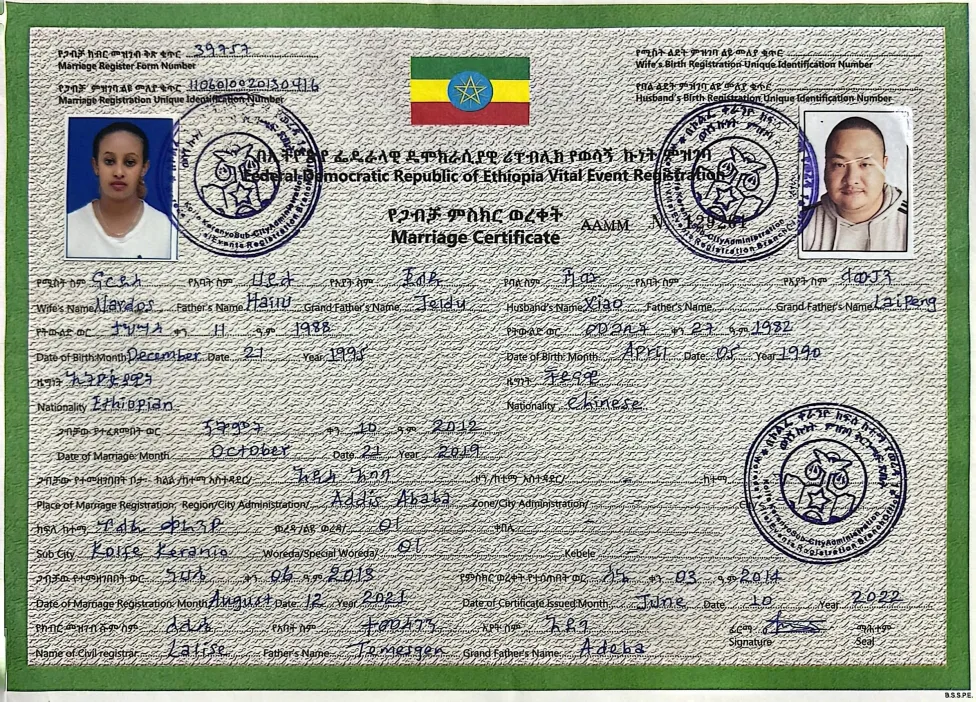 የጋብቻ ክብር መዝገብ ቅጽ ቁጥር 39757
Marriage Register Form Number
የጋብቻ ምዝገባ ልዩ መለያ ቁጥር
Marriage Registration Unique Identification Number
የሚስት ልደት ምዝገባ ልዩ መለያ ቁጥር
Wife's Birth Registration Unique Identification Number
የባል ልደት ምዝገባ ልዩ መለያ ቁጥር
Husband's Birth Registration Unique Identification Number
በኢትዮጵያ ፌዴራላዊ ዲሞክራሲያዊ ሪፐብሊክ የወሳኝ ኩነት ምዝገባ
Federal Democratic Republic of Ethiopia Vital Event Registration
የጋብቻ ምስክር ወረቀት
Marriage Certificate
AAMM
የሚስት ስም ናርዶስ የአባት ስም ሀይሉ የአያት ስም የባል ስም ሻው የአባት ስም የአያት ስም
Wife's Name Nardos Father's Name Hailu Grand Father's Name Husband's Name Xiao Father's Name Grand Father's Name LaiPeng
የትውልድ ወር ታህሣሥ ቀን 11 ዓ.ም 1988 የትውልድ ወር መጋቢት ቀን 27 ዓ.ም 1982
Date of Birth: Month December Date 21 Year 1995 Date of Birth: Month APRIL Date 05 Year 1990
ዜግነት ኢትዮጵያዊት ዜግነት ቻይናዊ
Nationality Ethiopian Nationality Chinese
ጋብቻው የተፈጸመበት ወር ጥቅምት ቀን 10 ዓ.ም 2012
Date of Marriage: Month October Date 21 Year 2019
ጋብቻው የተመዘገበበት ቦታ- ክልል /ከተማ አስተዳደር/ አዲስ አበባ ዞን /ከተማ አስተዳደር/ – ከተማ
Place of Marriage Registration: Region/City Administration/ Addis Ababa Zone/City Administration/ – City
ክፍለ ከተማ ኮልፌ ቀራንዮ ወረዳ/ልዩ ወረዳ/ 01 ቀበሌ –
Sub City Kolfe Keranio Woreda/Special Woreda/ 01 Kebele –
ጋብቻው የተመዘገበበት ወር ነሀሴ ቀን 06 ዓ.ም 2013 የምስክር ወረቀት የተሰጠበት ወር ሰኔ ቀን 03 ዓ.ም 2014
Date of Marriage Registration: Month August Date 12 Year 2021 Date of Certificate Issued Month June Date 10 Year 2022
የክብር መዝገብ ሹም ስም ላሊሴ የአባት ስም ተመስገን አያት ስም አደባ ፊርማ ማኅተም
Name of Civil registrar Lalise Father's Name Temesgen Grand Father's Name Adeba Signature Seal
B.S.S.P.E.